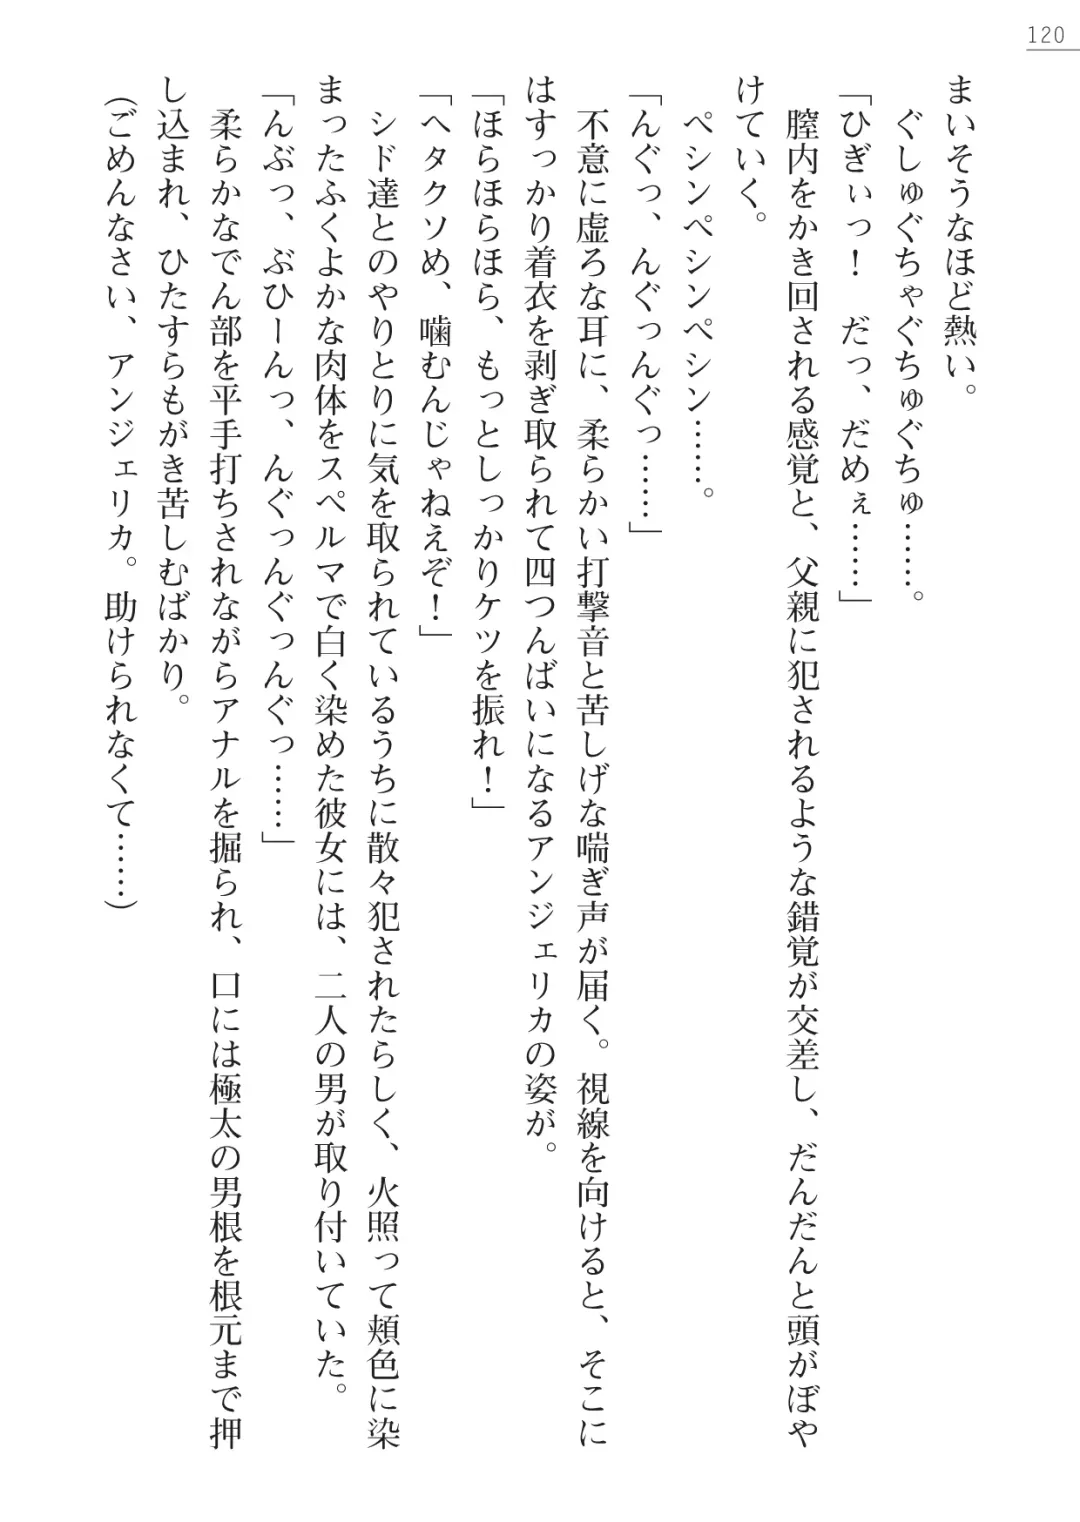 120
まいそうなほど熱い。
ぐしゅぐちゃぐちゅぐちゅ……。
「ひぎぃっ！　だっ、だめぇ……」
膣内をかき回される感覚と、父親に犯されるような錯覚が交差し、だんだんと頭がぼや
けていく。
ペシンペシンペシン……。
「んぐっ、んぐっんぐっ……」
不意に虚ろな耳に、柔らかい打撃音と苦しげな喘ぎ声が届く。視線を向けると、そこに
はすっかり着衣を剥ぎ取られて四つんばいになるアンジェリカの姿が。
「ほらほらほら、もっとしっかりケツを振れ！」
「ヘタクソめ、噛むんじゃねえぞ！」
シド達とのやりとりに気を取られているうちに散々犯されたらしく、火照って頬色に染
まったふくよかな肉体をスペルマで白く染めた彼女には、二人の男が取り付いていた。
「んぶっ、ぶひーんっ、んぐっんぐっんぐっ……」
柔らかなでん部を平手打ちされながらアナルを掘られ、口には極太の男根を根元まで押
し込まれ、ひたすらもがき苦しむばかり。
（ごめんなさい、アンジェリカ。助けられなくて……）